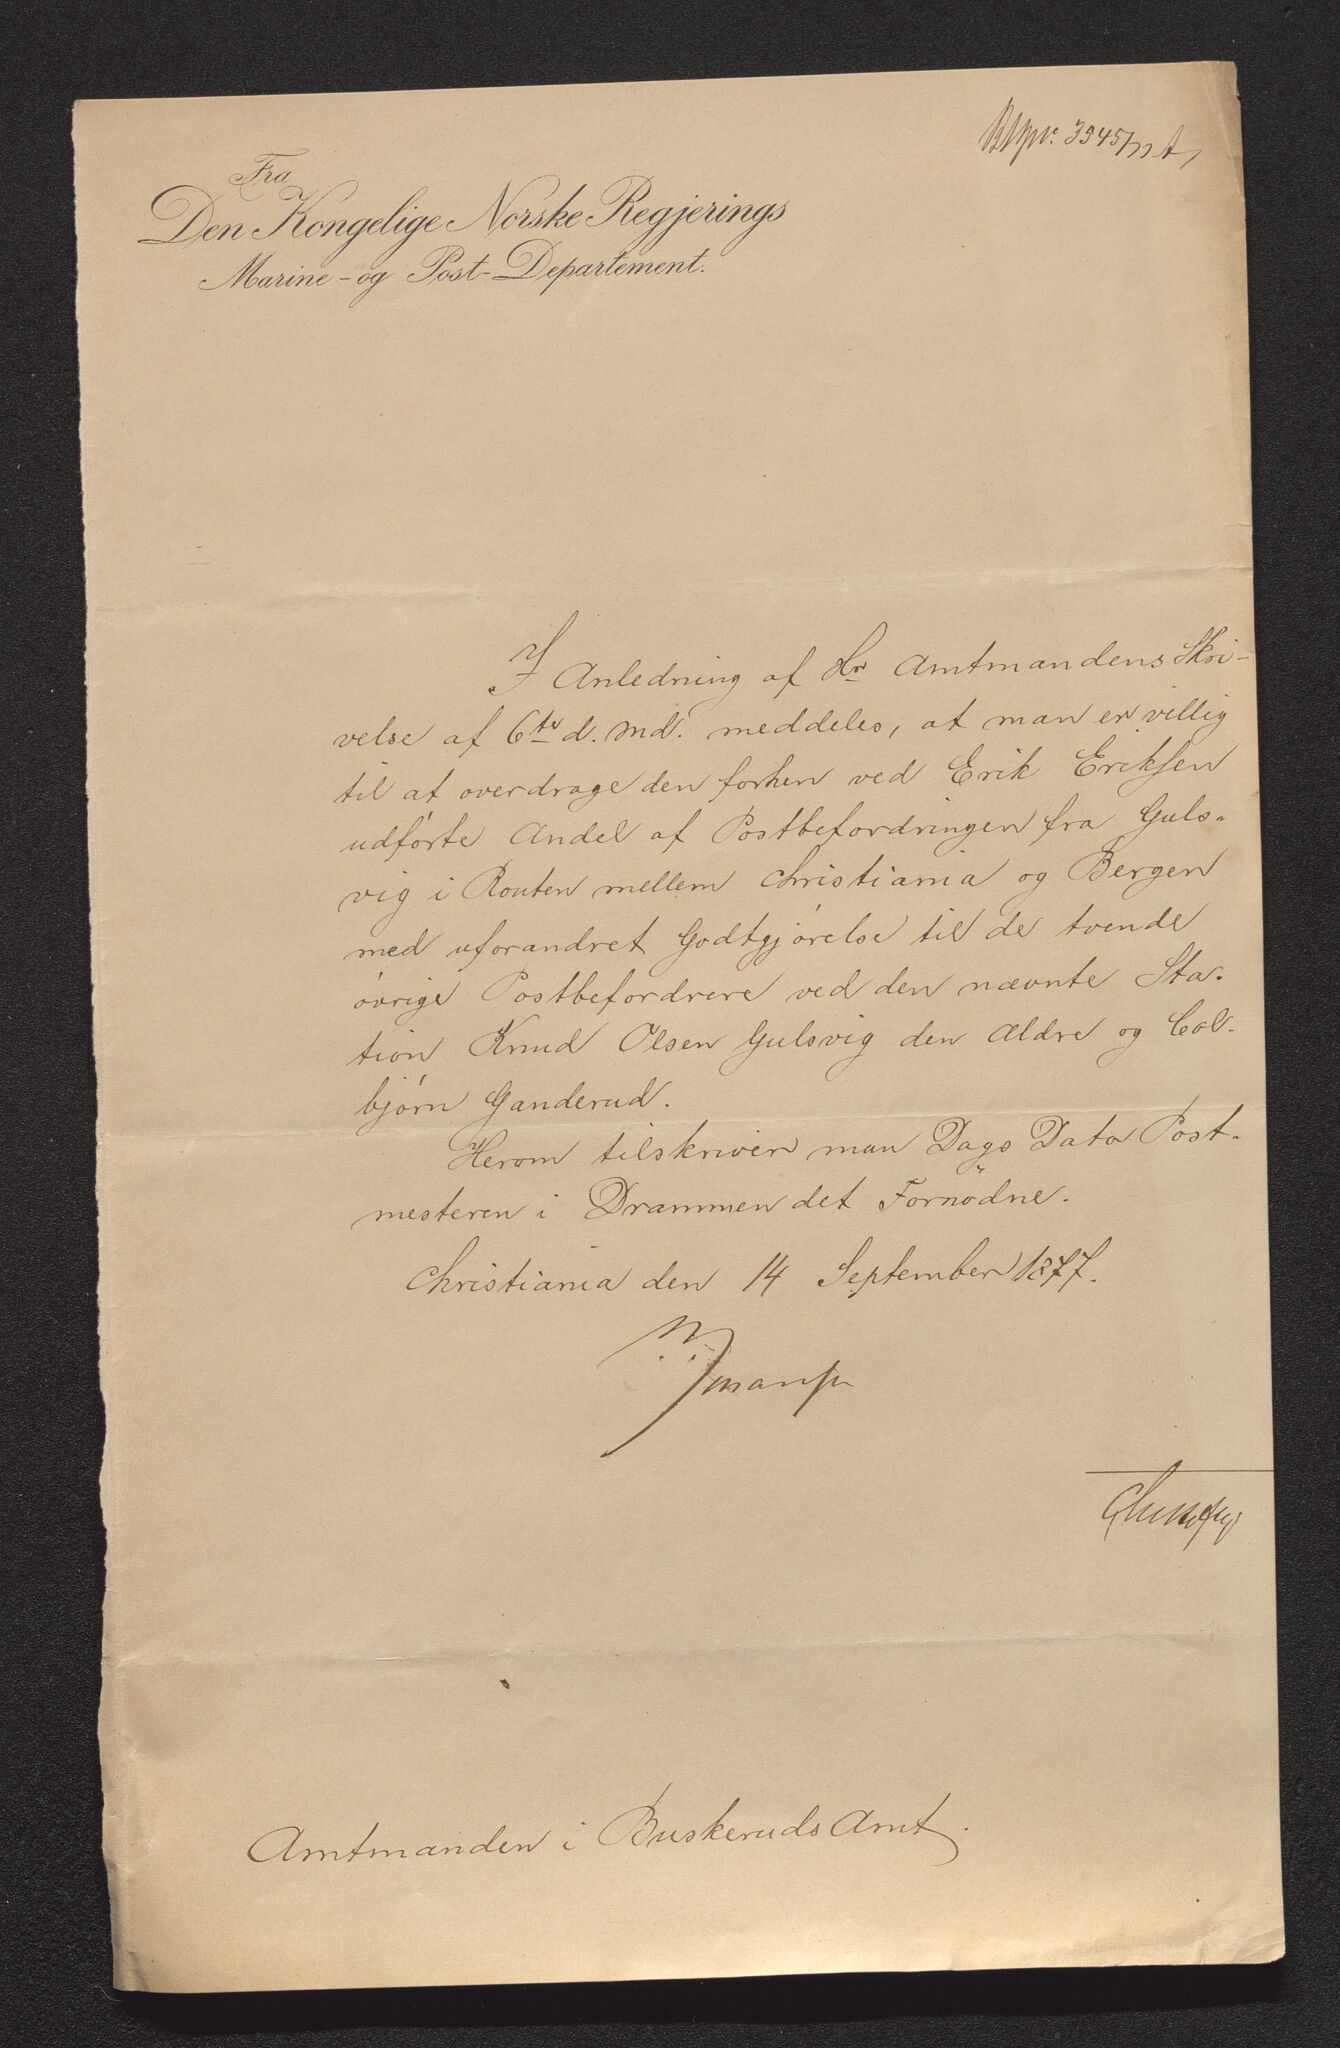 3545
Fra
Den Kongelige Norske Regjerings
Marine- og Post-Departement.
I Anledning af Hr Amtmandens Skri-
velse af 6te d. Md. meddeles, at man er villig
til at overdrage den forhen ved Erik Eriksen
udførte Andel af Postbefordringen fra Guls-
vig i Routen mellem Christiania og Bergen
med uforandret Godtgjørelse til de tvende
øvrige Postbefordrere ved den nævnte Sta-
tion Knud Olsen Gulsvig den ældre og Col-
bjørn Ganderud.
Herom tilskriver man Dags Dato Post-
mesteren i Drammen det Fornødne.
Christiania den 14 September 1877.
Amtmanden i Buskeruds Amt.